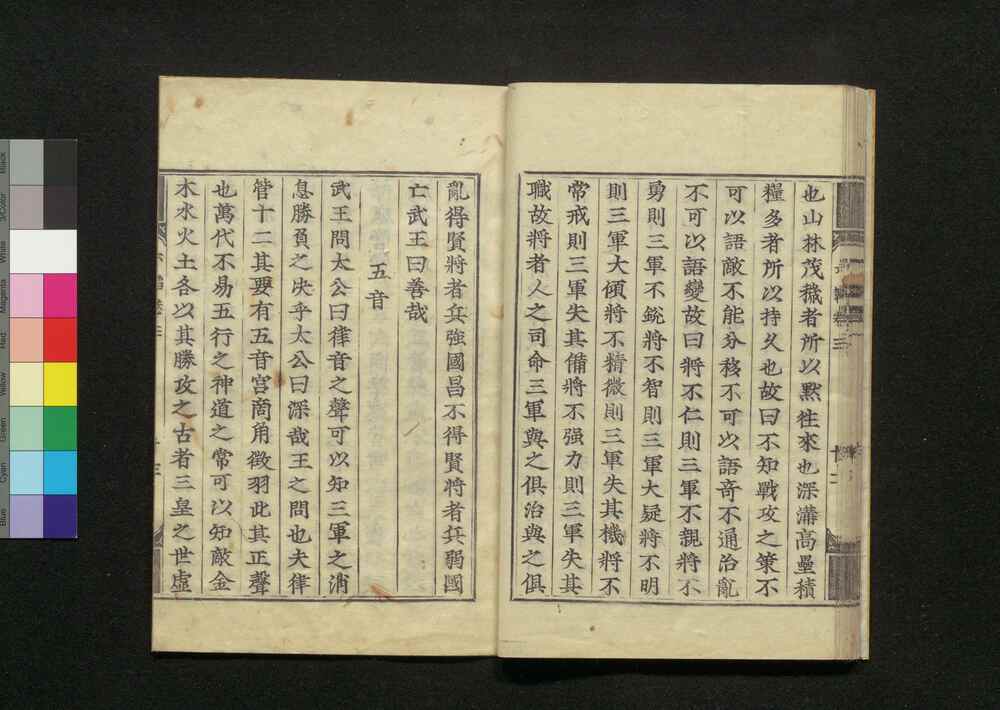 也山林茂穢者所以黙往來也深溝高壘積
糧多者所以持久也故曰不知戰攻之策不
可以語敵不能分移不可以語奇不通治亂
不可以語變故曰將不仁則三軍不親將不
勇則三軍不銳將不智則三軍大疑將不明
則三軍大傾將不精微則三軍失其機將不
常戒則三軍失其備將不强力則三軍失其
職故將者人之司命三軍與之俱治與之俱
亂得賢將者兵強國昌不得賢將者兵弱國
亡武王曰善哉
五音
武王問太公曰律音之聲可以知三軍之消
息勝負之決乎太公曰深哉王之問也夫律
管十二其要有五音宮商角徵羽此其正聲
也萬代不易五行之神道之常可以知敵金
木水火土各以其勝攻之古者三皇之世虛
Black
3/Color
White
Magenta
Red
Yellow
Green
Cyan
Blue